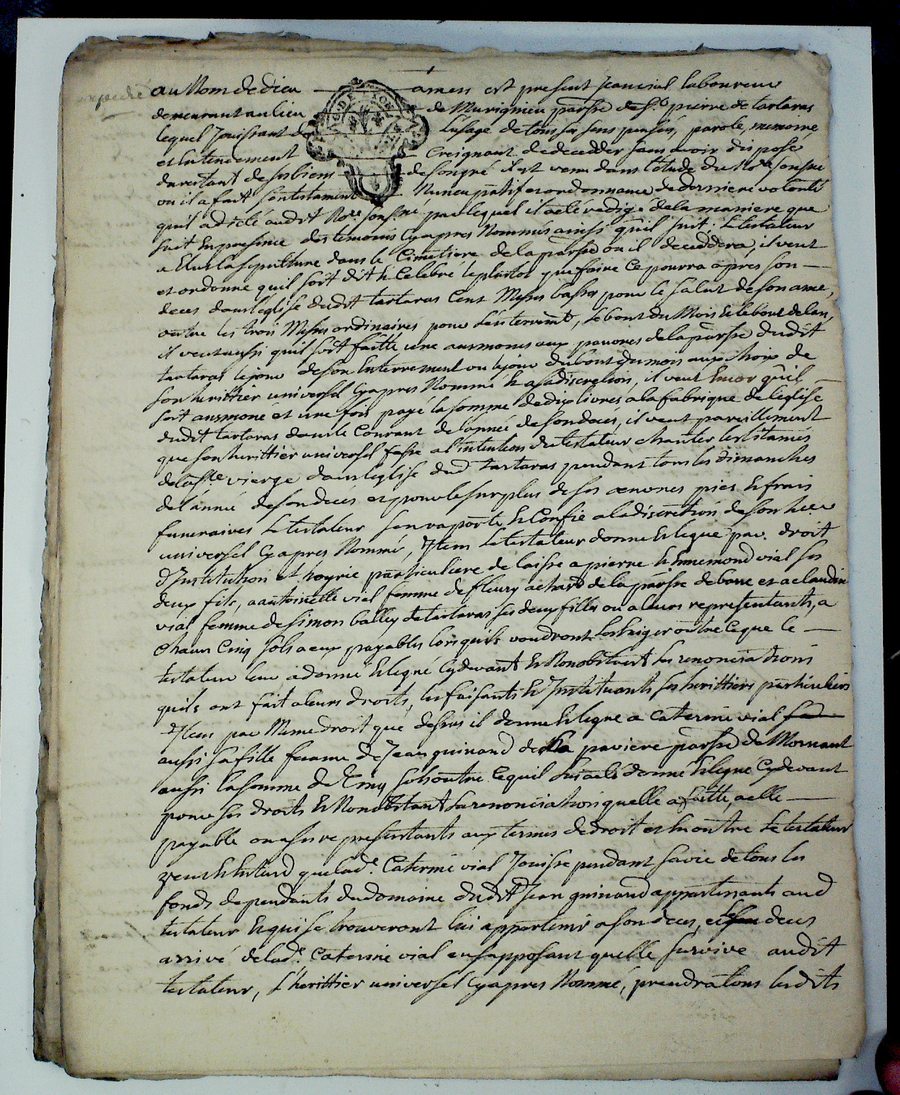 expedié
au Nom de dieu amen est present jean vial laboureur
demeurant au lieu de Marignieu parsse de St pierre de tartaras
lequel Jouissant de l'usage de tous sa sens pensée, parole, memoire
et Entendement Creignant de decedder sans avoir dispose
du restant de ses biens de son gré Est venu dans l'Etude du No.re soussné
ou il a fait son testament Nuncupatif et ordonnance de derniere volonté
quil a dicté audit No.re soussné par lequel il a eté redigé de la maniere que
suit En presence des temoins Cyapres Nommés ainsi quil suit; Le testateur
a Elut la sepulture dans le Cimetiere de la parsse ou il deceddera, il veut
et ordonne quil soit dit & Celebré le plustot que faire Ce pourra après son
deces dans l'Eglise dudit tartaras Cent Messes basses pour le salut de son ame,
outre les trois Messes ordinaires pour l'Enterrement, le bout du Mois & le bout de l'an,
il veut aussi quil soit faitte une aumone aux pauvres de la parsse dudit
tartaras le jour de son Enterrement ou le jour du bout du mois au Choix de
son herittier universel Cyapres Nommé & a sa discretion, il veut Encor quil
soit aumoné et une fois payé la somme de dix livres a la fabrique de l'eglise
dudit tartaras dans le Courant de l'année de son deces, il veut pareillement
que son herittier universel fasse a l'intention du testateur chanter les litanies
de la Ste vierge dans l'eglise dud tartaras pendant tous les dimanches
de l'année de son deces et pour le surplus de ses œuvres pies & frais
funeraires Le testateur s'en raporte & Confie a la discretion de son her
universel Cyapres Nommé, Item Le testateur donne & legue par droit
d'Institution et particuliere de laisse a pierre & Ennemond vial ses
deux fils, a antoinette vial femme de fleury achard de la parsse de et a claudine
vial femme de simon balley de tartaras ses deux filles ou a leurs representants, a
Chacun Cinq sols a eux payables lorsquils voudront les Exiger outre Ce que le
testateur leur a donné & legué Cydevant & Nonobstant les renonciations
quils ont fait a leurs droits, les faisants & Instituants ses herittiers particuliers
Item par Meme droit que dessus il donne & legue a Caterine vial
aussi sa fille femme de Jean guinand de la paviere parsse de Mornant
aussi la somme de Cinq sols outre Ce quil lui a donné & legué Cydevant
pour ses droits & Nonobstant la renonciation quelle a faitte a elle
payable ou a ses representants aux termes de droit et En outre Le testateur
veut & Entend que lad.e Caterine vial Jouisse pendant sa vie de tous les
fonds dependants du domaine dudit Jean guinand appartenants aud
testateur & qui se trouveront lui appartenir a son deces, et deces
arrivé de lad.e Caterine vial en supposant quelle survive audit
testateur, L'herittier universel Cyapres Nommé, prendra tous lesdits